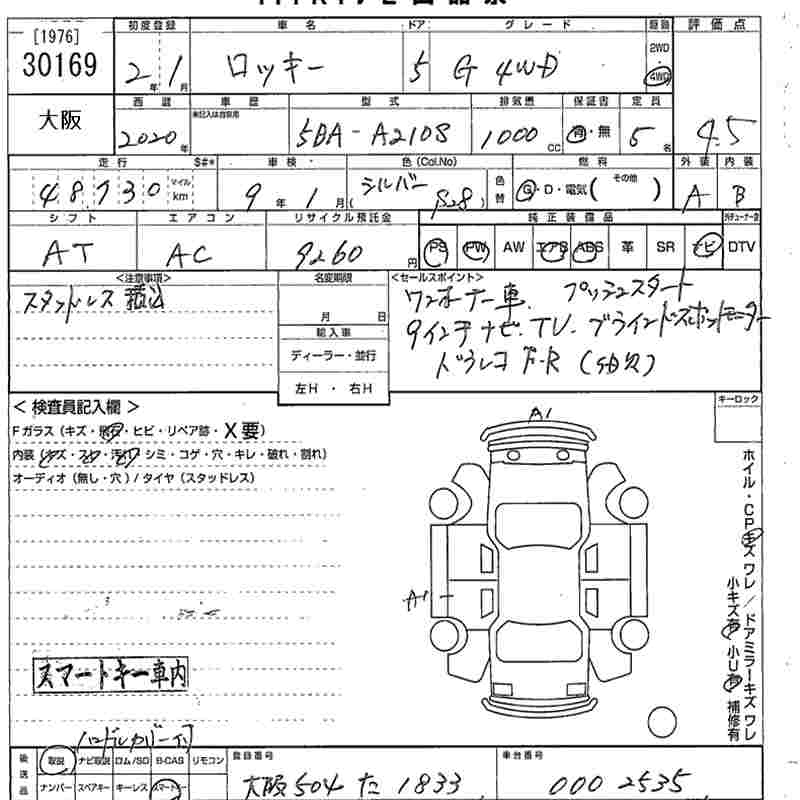 [1976]
30169
初度登録 車名 ドア グレード 評価点
2年 1月 ロッキー 5 G 4WD 2WD 4WD
大阪
西暦 車歴 型式 排気量 保証書 定員
未記入は自家用
2020年 5BA-A210S 1000cc 有・無 5名 4.5
走行 S#* 車検 色(Col.No) 燃料 外装 内装
48730 マイル km 9年 1月 シルバー (S28) 色替 G・D・電気( その他 ) A B
シフト エアコン リサイクル預託金 純正装備品
AT AC 9260円 PS PW AW エアB ABS 革 SR ナビ DTV
<注意事項> 名変期限 <セールスポイント>
スタッドレス積込
月 日
輸入車
ディーラー・並行
左H ・ 右H
ワンオーナー車. プッシュスタート
9インチナビ.TV. ブラインドスポットモニター
ドラレコ F-R (SD欠)
< 検査員記入欄 > キーロック
Fガラス(キズ・飛石・ヒビ・リペア跡・X要)
内装(キズ・スレ・汚れ・シミ・コゲ・穴・キレ・破れ・割れ)
オーディオ(無し・穴)/タイヤ(スタッドレス)
A1
A1
ホイル・CPキズ ワレ/ドアミラーキズ ワレ
小キズ有 小U有 補修有
スマートキー車内
ハンドルカバー付
後送品 取説 ナビ取説 ロム/SD B-CAS リモコン 登録番号 車台番号
ナンバー スペアキー キーレス スマートキー 大阪504 た 1833 000 2535